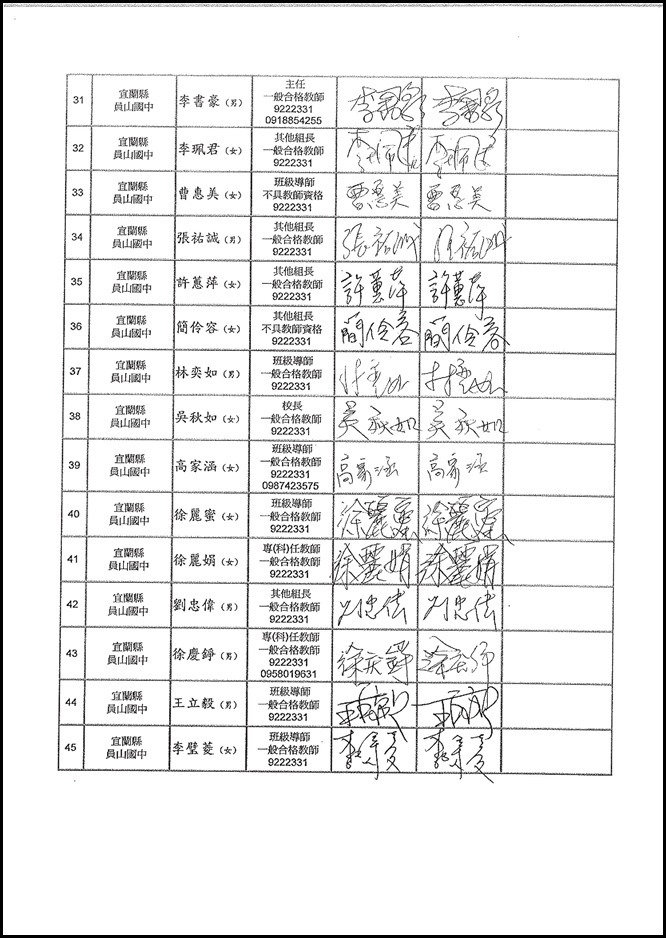 31 宜蘭縣 員山國中 李書豪（男） 主任 一般合格教師 9222331 0918854255 李書豪 李書豪
32 宜蘭縣 員山國中 李珮君（女） 其他組長 一般合格教師 9222331 李珮君 李珮君
33 宜蘭縣 員山國中 曹惠美（女） 班級導師 不具教師資格 9222331 曹惠美 曹惠美
34 宜蘭縣 員山國中 張祐誠（男） 其他組長 一般合格教師 9222331 張祐誠 張祐誠
35 宜蘭縣 員山國中 許蕙萍（女） 其他組長 一般合格教師 9222331 許蕙萍 許蕙萍
36 宜蘭縣 員山國中 簡伶容（女） 其他組長 不具教師資格 9222331 簡伶容 簡伶容
37 宜蘭縣 員山國中 林奕如（男） 班級導師 一般合格教師 9222331 林奕如 林奕如
38 宜蘭縣 員山國中 吳秋如（女） 校長 一般合格教師 9222331 吳秋如 吳秋如
39 宜蘭縣 員山國中 高家涵（女） 班級導師 一般合格教師 9222331 0987423575 高家涵 高家涵
40 宜蘭縣 員山國中 徐麗蜜（女） 班級導師 一般合格教師 9222331 徐麗蜜 徐麗蜜
41 宜蘭縣 員山國中 徐麗娟（女） 專(科)任教師 一般合格教師 9222331 徐麗娟 徐麗娟
42 宜蘭縣 員山國中 劉忠偉（男） 其他組長 一般合格教師 9222331 刘忠偉 刘忠偉
43 宜蘭縣 員山國中 徐慶錚（男） 專(科)任教師 一般合格教師 9222331 0958019631 徐慶錚 徐慶錚
44 宜蘭縣 員山國中 王立毅（男） 班級導師 一般合格教師 9222331
45 宜蘭縣 員山國中 李璧菱（女） 班級導師 一般合格教師 9222331